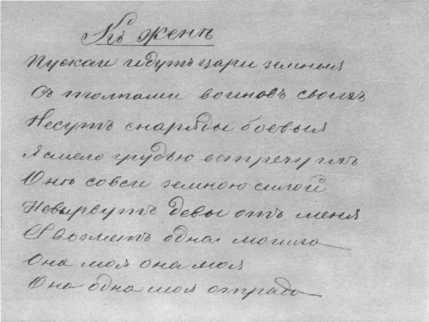 Къ женѣ
Пускай идутъ цари земныя
Съ толпами воиновъ своихъ
Несутъ снаряды боевыя
Я смело грудью встречу ихъ
Онѣ совсей земною силой
Невырвутъ девы отъ меня
Ее возметъ одна могила
Она моя она моя
Она одна моя отрада